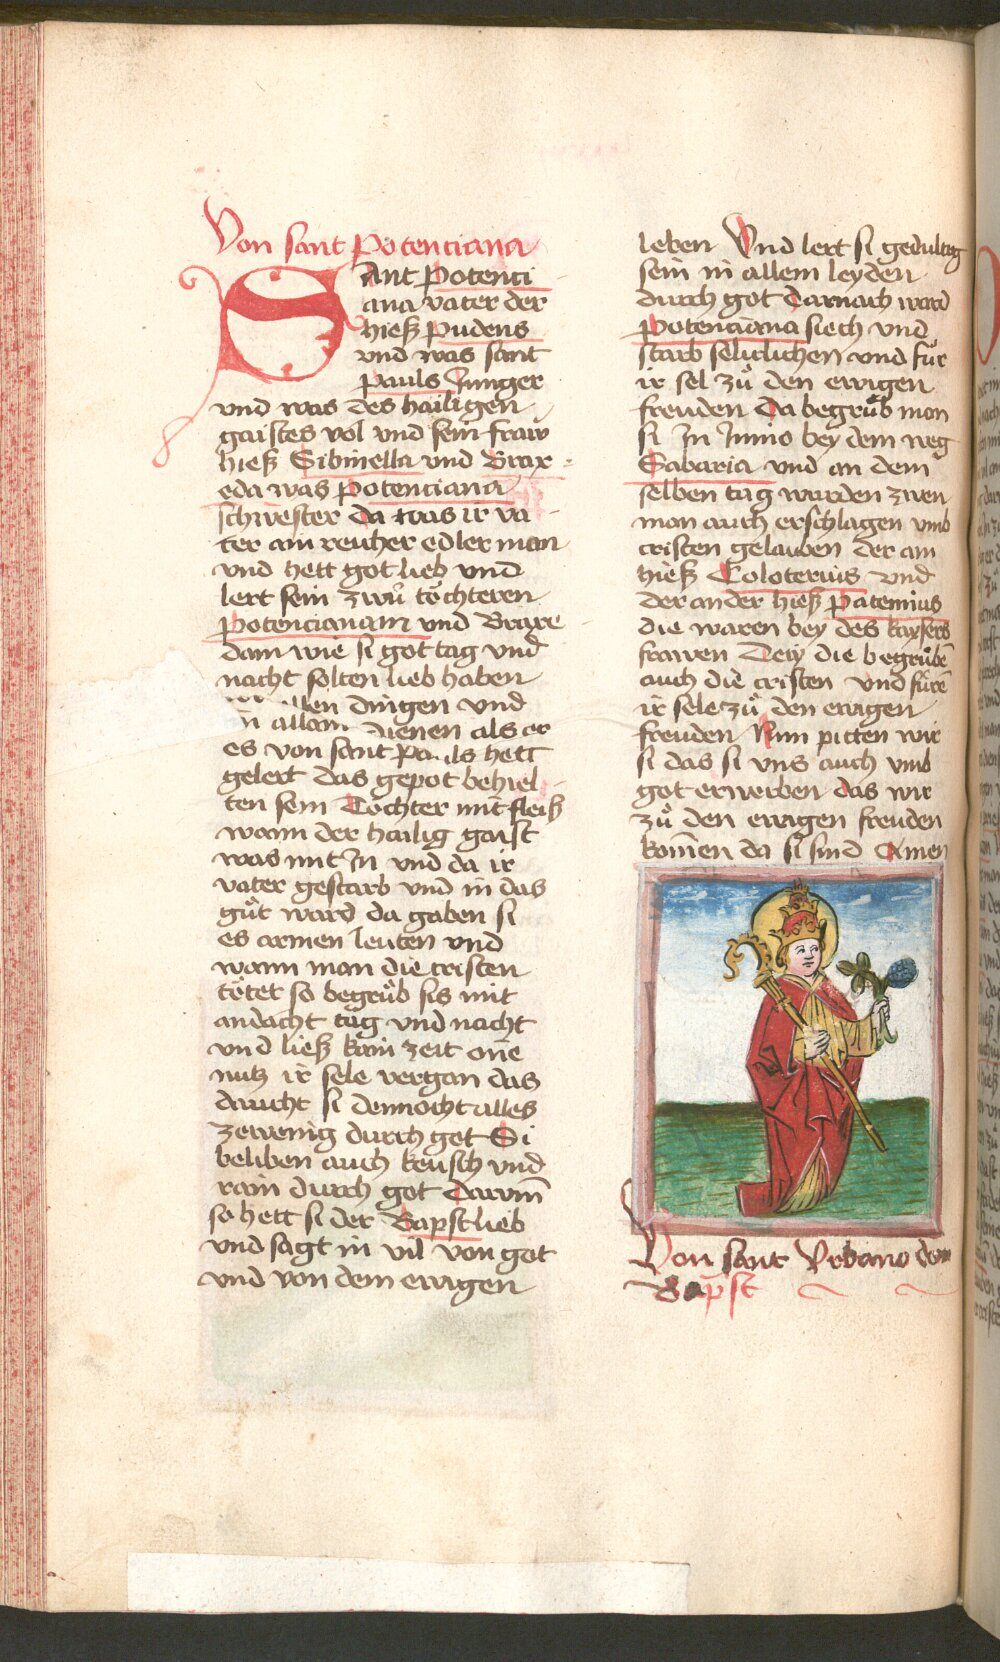 Von sant Potenciana
Sant Potenci
ana vater der
hieß Pudens
vnd was sant
Pauls Junger
vnd was des hailigen
gaistes vol vnd sein fraw
hieß Sibinella vnd Brax
eda was Potenciana
schwester da was ir va
ter ain reicher edler man
vnd hett got lieb vnd
lert sein zwů tőchteren
Potencianam vnd Braxe
dam wie si got tag vnd
nacht solten lieb haben
allen dingen vnd
allain dienen als er
es von sant Pauls hett
gelert das gepot behiel
ten sein Tochter mit fleiß
wann der hailig gaist
was mit Jn vnd da ir
vater gestarb vnd in das
gůt ward da gaben si
es armen leuten vnd
wann man die cristen
tőtet so begrůb sis mit
andacht tag vnd nacht
vnd ließ kain zeit one
nutz ir sele vergan das
daucht si dennocht alles
zewenig durch got Si
beliben auch keusch vnd
rain durch got Darum̄
so hett si der Bapst lieb
vnd sagt in vil von got
vnd von dem ewigen
leben Vnd lert si gedultig
sein in allem leyden
durch got Darnach ward
Potenciana siech vnd
starb seliclichen vnd fůr
ir sel zů den ewigen
freuden Da begrůb man
si Jn Junio bey dem weg
Sabaria vnd an dem
selben tag wurden zwen
man auch erschlagen vmb
cristen gelauben der ain
hieß Coloterius vnd
der ander hieß Patemius
die waren bey des kaysers
frawen Dew die begrůbē
auch die cristen vnd fůrē
ir sele zů den ewigen
freuden Nun pitten wir
si das si vns auch vmb
got erwerben das wir
zů den ewigen freuden
kom̄en da si sind Amen
Von sant Vrbano dem
Bapst